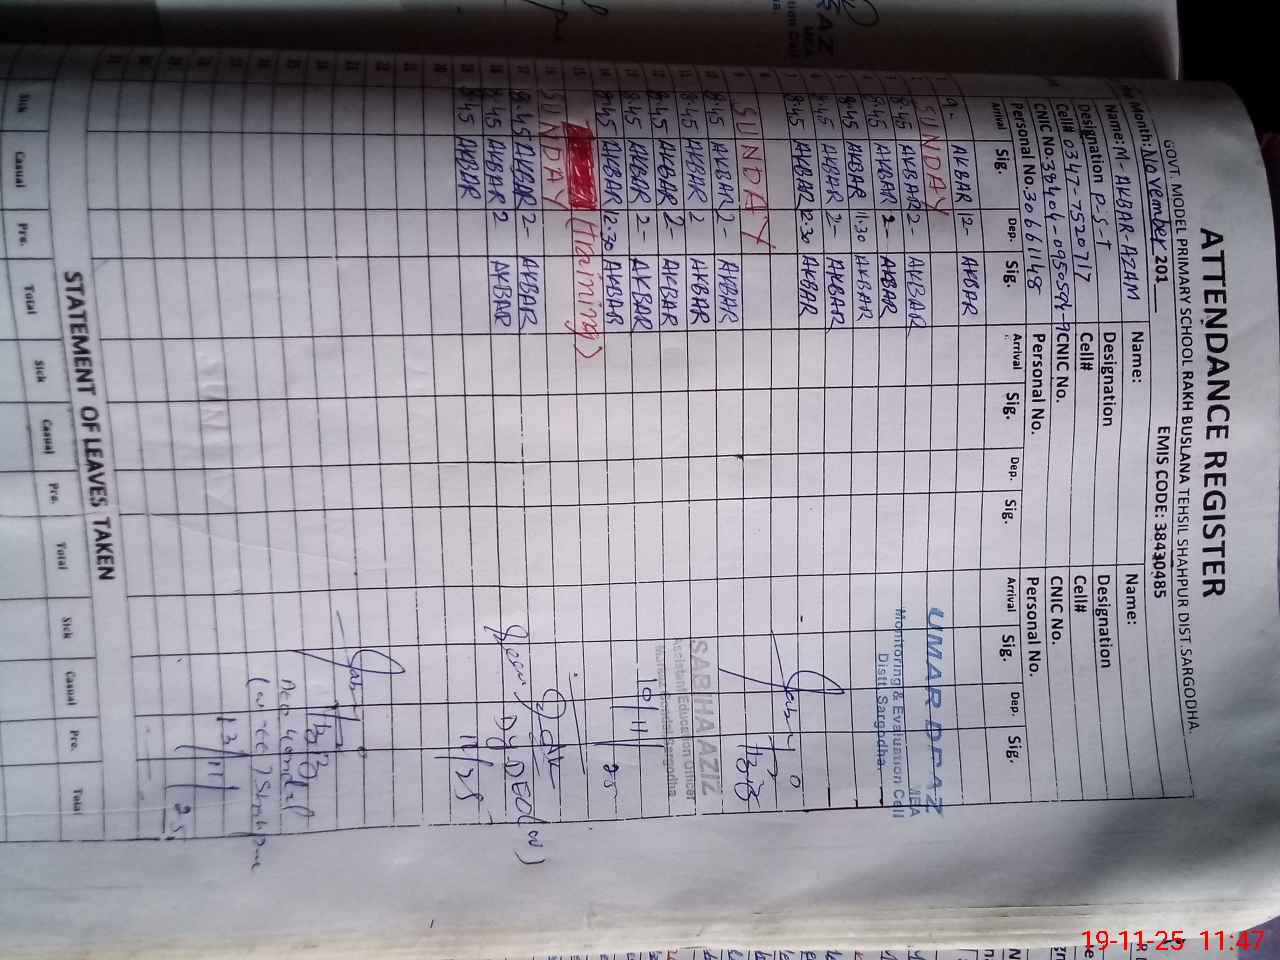 ATTENDANCE REGISTER
GOVT. MODEL PRIMARY SCHOOL RAKH BUSLANA TEHSIL SHAHPUR DIST. SARGODHA.
Month: November 201 EMIS CODE: 38430485
Name: M-AKBAR-AZAM Name: Name:
Designation P-S-T Designation Designation
Cell# 0347-7520717 Cell# Cell#
CNIC No. 38404-0950594-9 CNIC No. CNIC No.
Personal No. 30661148 Personal No. Personal No.
Arrival Sig. Dep. Sig. Arrival Sig. Dep. Sig. Arrival Sig. Dep. Sig.
9- AKBAR 12- AKBAR
SUNDAY
8.45 AKBAR 2- AKBAR
8.45 AKBAR 2- AKBAR
8.45 AKBAR 11.30 AKBAR
8.45 AKBAR 2- AKBAR
8.45 AKBAR 12.30 AKBAR
SUNDAY
8.45 AKBAR 2- AKBAR
8.45 AKBAR 2 AKBAR
8.45 AKBAR 2- AKBAR
8.45 AKBAR 2- AKBAR
8.45 AKBAR 12.30 AKBAR
(Training)
SUNDAY
8.45 AKBAR 2- AKBAR
8.45 AKBAR 2 AKBAR
8.45 AKBAR
UMAR DRAZ
MEA
Monitoring & Evaluation Cell
Distt Sargodha.
SABIHA AZIZ
Assistant Education Officer
10/11
25
Dy DEO (w)
11/25
13/11
25
STATEMENT OF LEAVES TAKEN
Sick Casual Pre. Total Sick Casual Pre. Total Sick Casual Pre. Total
19-11-25 11:47